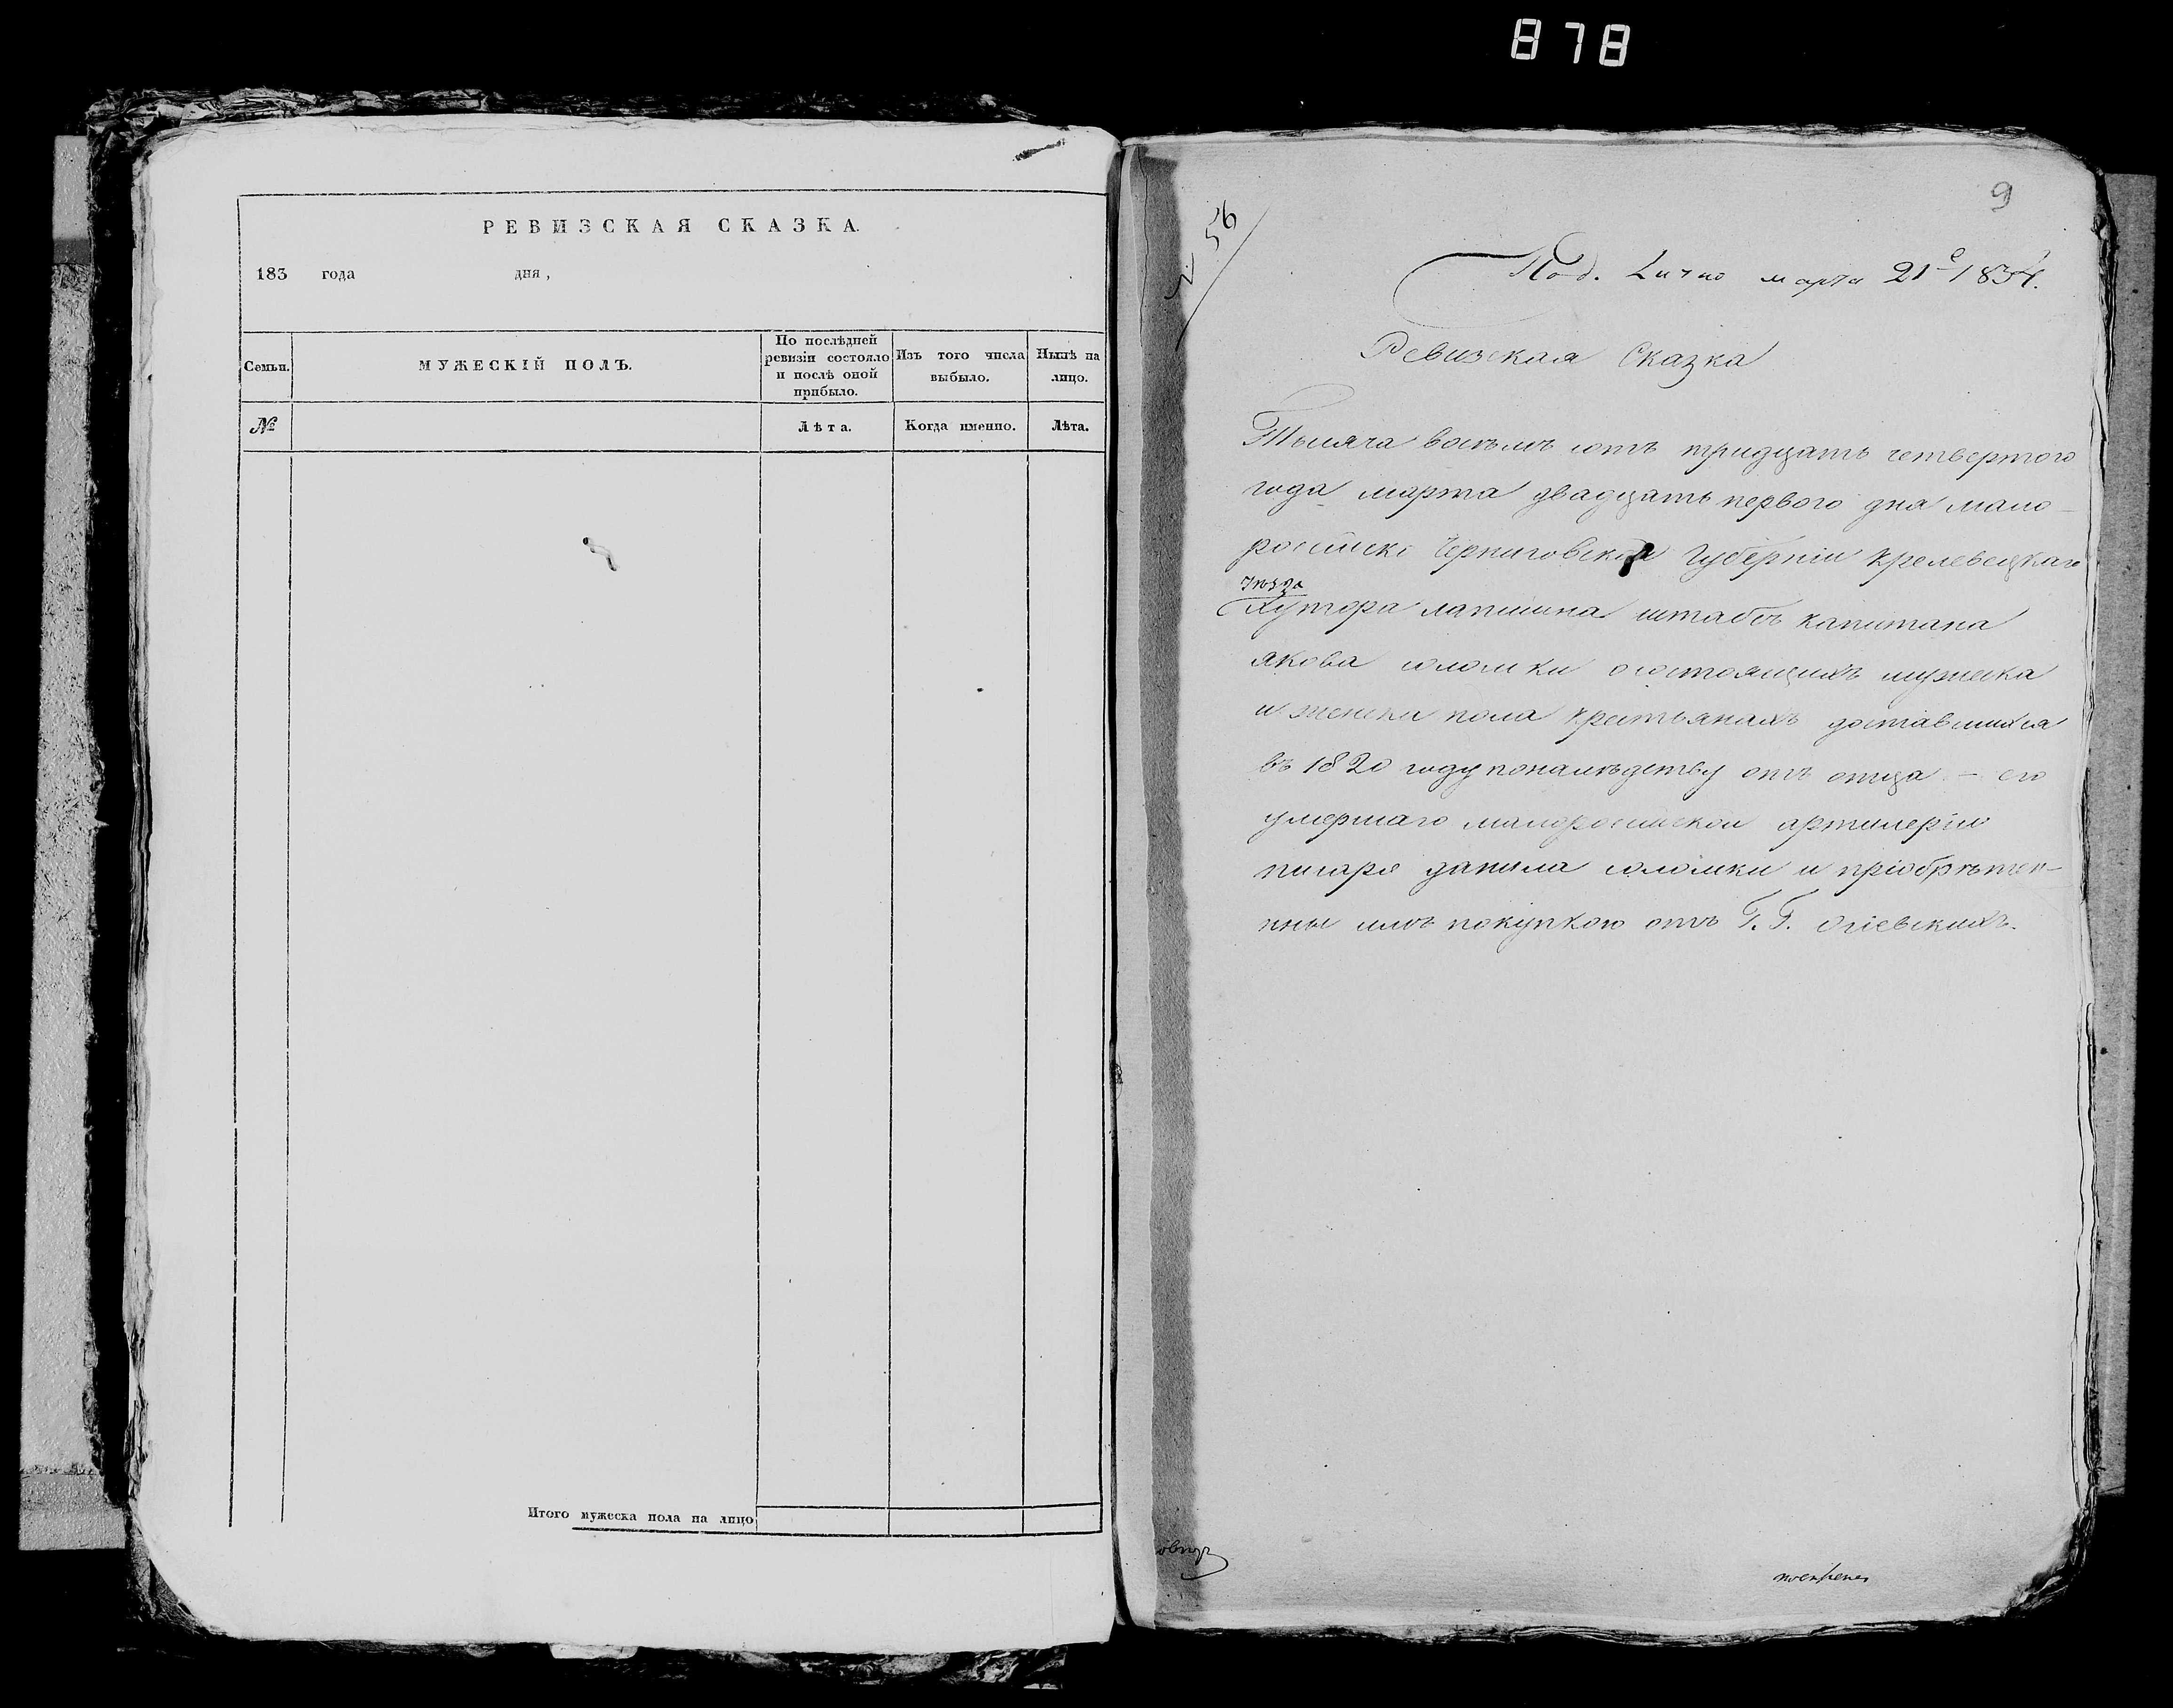 878
РЕВИЗСКАЯ СКАЗКА.
183 года дня,
Семьи.
МУЖЕСКІЙ ПОЛЪ.
По послѣдней
ревизіи состояло
и послѣ оной
прибыло.
Изъ того числа
выбыло.
Нынѣ на
лицо.
№
Лѣта.
Когда именно.
Лѣта.
Итого мужеска пола на лицо
9
N 56
Под. Лично марта 21 1834.
Ревизская Сказка
Тысяча восемъ сотъ тридцать четвертого
года марта двадцать первого дня мало
росийско Черниговской Губерніи кролевецкаго
уѣзда
хутора лапшина штабсъ капитана
якова соломки о состоящихъ мужеска
и женска пола крестьянахъ доставшихся
въ 1820 году понаслѣдству отъ отца - его
умершаго малоросийской артилеріи
писаря данила соломки и пріобрѣтен-
ные имъ покупкою отъ Г. Г. Огіевскихъ.